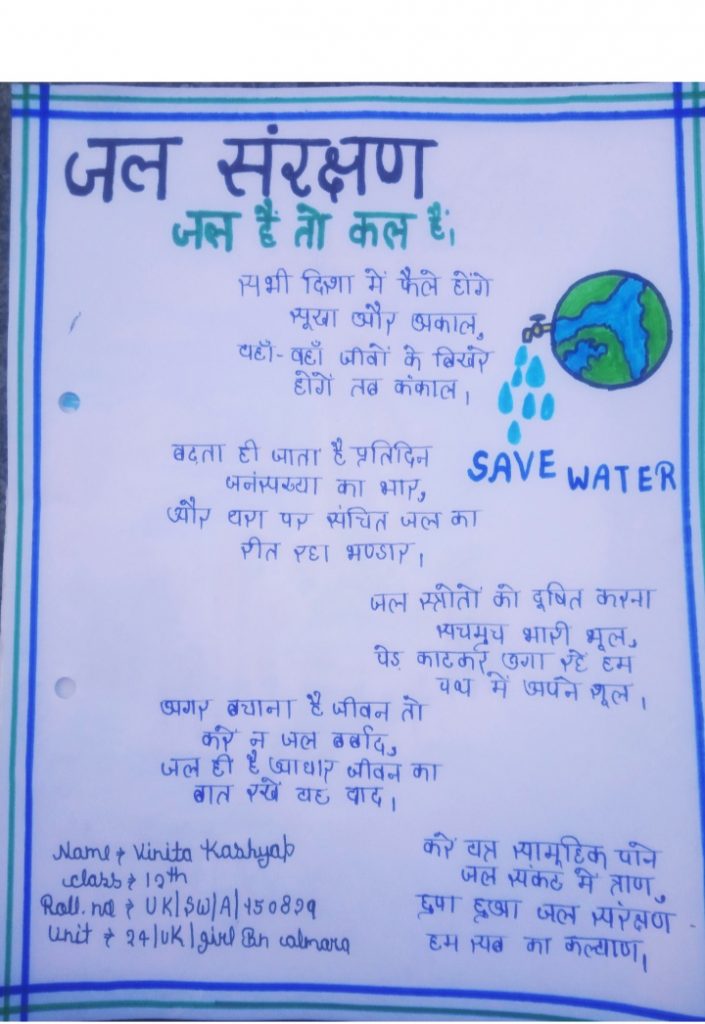 जल संरक्षण
जल हैं तो कल हैं।
सभी दिशा में फैले होंगे
सूखा और अकाल,
यहाँ-वहाँ जीवों के बिखरे
होगें तब कंकाल।
SAVE WATER
बढ़ता ही जाता है प्रतिदिन
जनंसख्या का भार,
और धरा पर संचित जल का
रीत रहा भण्डार।
जल स्त्रोतों को दूषित करना
सचमुच भारी भूल,
पेड़ काटकर उगा रहे हम
पथ में अपने शूल।
अगर बचाना है जीवन तो
करे न जल बर्बाद,
जल ही है आधार जीवन का
बात रखें यह याद।
करे यत्न सामूहिक पाने
जल संकट में त्राण,
छुपा हुआ जल संरक्षण
हम सब का कल्याण।
Name → Vinita Kashyap
class → 12th
Roll. no → UK|SW|A|450829
Unit → 24|UK|girl Bn almara